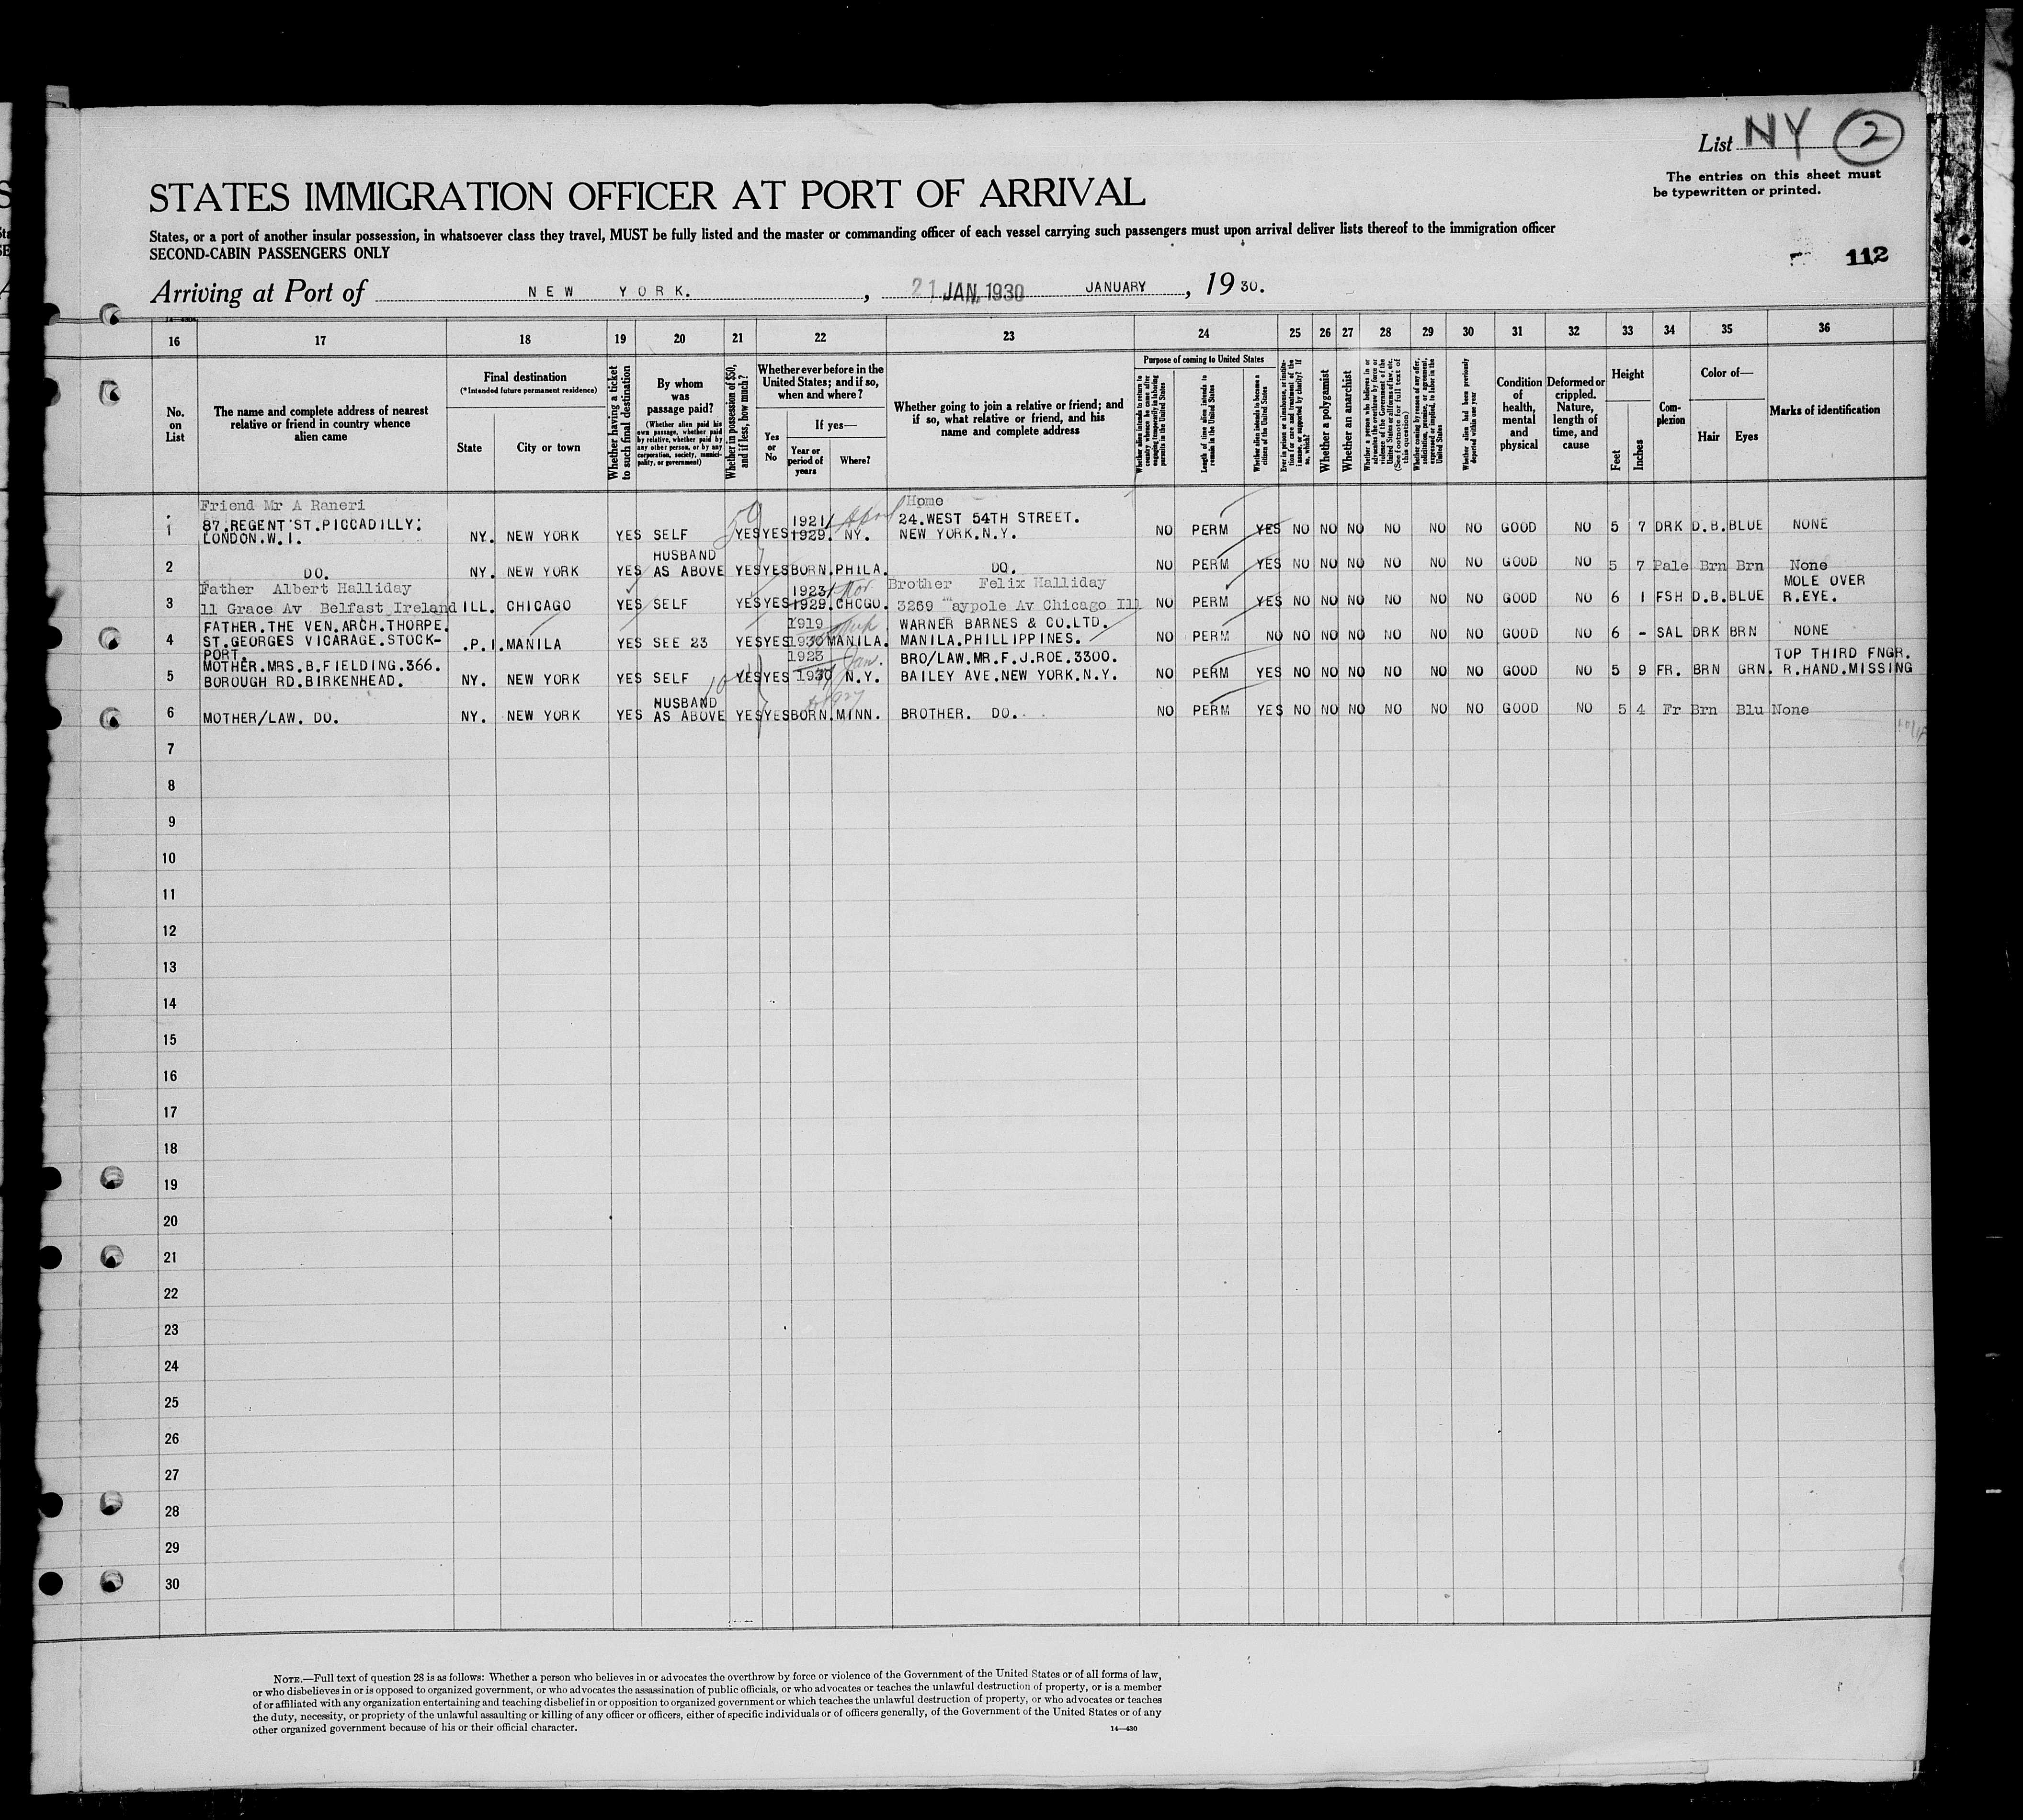 List NY 2
The entries on this sheet must
be typewritten or printed.
STATES IMMIGRATION OFFICER AT PORT OF ARRIVAL
States, or a port of another insular possession, in whatsoever class they travel, MUST be fully listed and the master or commanding officer of each vessel carrying such passengers must upon arrival deliver lists thereof to the immigration officer
SECOND-CABIN PASSENGERS ONLY
112
Arriving at Port of NEW YORK. , 21 JAN. 1930 JANUARY , 19 30.
16 17 18 19 20 21 22 23 24 25 26 27 28 29 30 31 32 33 34 35 36
No. on List
The name and complete address of nearest relative or friend in country whence alien came
Final destination
(*Intended future permanent residence)
State
City or town
Whether having a ticket to such final destination
By whom was passage paid?
(Whether alien paid his own passage, whether paid by relative, whether paid by any other person, or by any corporation, society, municipality, or government)
Whether in possession of $50, and if less, how much?
Whether ever before in the United States; and if so, when and where?
Yes or No
If yes—
Year or period of years
Where?
Whether going to join a relative or friend; and if so, what relative or friend, and his name and complete address
Purpose of coming to United States
Whether alien intends to return to country whence he came after engaging temporarily in laboring pursuits in the United States
Length of time alien intends to remain in the United States
Whether alien intends to become a citizen of the United States
Ever in prison or almshouse, or institution for care and treatment of the insane, or supported by charity? If so, which?
Whether a polygamist
Whether an anarchist
Whether a person who believes in or advocates the overthrow by force or violence of the Government of the United States or all forms of law, etc. (See footnote for full text of this question)
Whether coming by reason of any offer, solicitation, promise, or agreement, expressed or implied, to labor in the United States
Whether alien had been previously deported within one year
Condition of health, mental and physical
Deformed or crippled. Nature, length of time, and cause
Height
Feet
Inches
Complexion
Color of—
Hair
Eyes
Marks of identification
1 Friend Mr A Raneri 87.REGENT ST.PICCADILLY. LONDON.W.I. NY. NEW YORK YES SELF 50 YES YES 1921/ 1929. April NY. Home 24.WEST 54TH STREET. NEW YORK.N.Y. NO PERM YES NO NO NO NO NO NO GOOD NO 5 7 DRK D.B. BLUE NONE
2 DO. NY. NEW YORK YES HUSBAND AS ABOVE YES YES BORN. PHILA. DO. NO PERM YES NO NO NO NO NO NO GOOD NO 5 7 Pale Brn Brn None
3 Father Albert Halliday 11 Grace Av Belfast Ireland ILL. CHICAGO YES SELF YES YES 1923/ 1929. CHCGO. Brother Felix Halliday 3269 Maypole Av Chicago Ill NO PERM YES NO NO NO NO NO NO GOOD NO 6 1 FSH D.B. BLUE MOLE OVER R.EYE.
4 FATHER.THE VEN.ARCH.THORPE. ST.GEORGES VICARAGE.STOCK-PORT. P.I. MANILA YES SEE 23 YES YES 1919 1930 MANILA. WARNER BARNES & CO.LTD. MANILA.PHILLIPPINES. NO PERM NO NO NO NO NO NO NO GOOD NO 6 - SAL DRK BRN NONE
5 MOTHER.MRS.B.FIELDING.366. BOROUGH RD.BIRKENHEAD. NY. NEW YORK YES SELF YES YES 1923 1930 Jan. N.Y. BRO/LAW.MR.F.J.ROE.3300. BAILEY AVE.NEW YORK.N.Y. NO PERM YES NO NO NO NO NO NO GOOD NO 5 9 FR. BRN GRN. TOP THIRD FNGR. R.HAND.MISSING
6 MOTHER/LAW. DO. NY. NEW YORK YES HUSBAND AS ABOVE YES YES BORN. MINN. BROTHER. DO. NO PERM YES NO NO NO NO NO NO GOOD NO 5 4 Fr Brn Blu None
7
8
9
10
11
12
13
14
15
16
17
18
19
20
21
22
23
24
25
26
27
28
29
30
NOTE.—Full text of question 28 is as follows: Whether a person who believes in or advocates the overthrow by force or violence of the Government of the United States or of all forms of law,
or who disbelieves in or is opposed to organized government, or who advocates the assassination of public officials, or who advocates or teaches the unlawful destruction of property, or is a member
of or affiliated with any organization entertaining and teaching disbelief in or opposition to organized government or which teaches the unlawful destruction of property, or who advocates or teaches
the duty, necessity, or propriety of the unlawful assaulting or killing of any officer or officers, either of specific individuals or of officers generally, of the Government of the United States or of any
other organized government because of his or their official character.
14—430